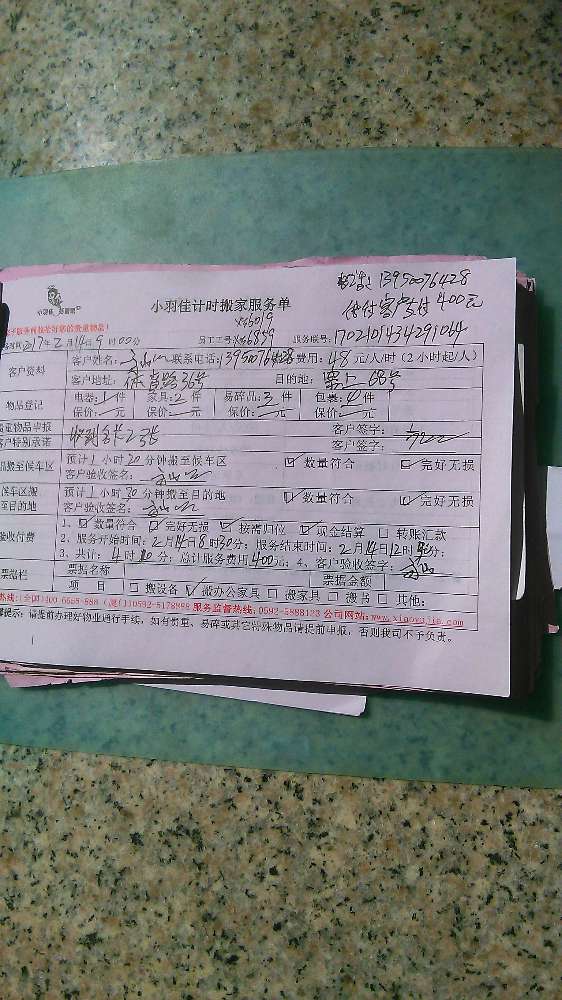 邹鹰: 13950076428
代付客户支付400元
小羽佳 好彩头
小羽佳计时搬家服务单
x45019
服务时间2017年2月14日9时00分 员工工号x46859 服务联号:1702101434291064
客户资料
客户姓名: 联系电话:1395076 费用:48元/人/时(2小时起/人)
客户地址:体育路36号 目的地: 上68号
物品登记
电器:1件 家具:2件 易碎品:3件 包裹:40件
保价: 元 保价: 元 保价: 元 保价: 元
贵重物品申报 客户签字:
客户特别承诺 客户签字:
品搬至候车区 预计1小时20分钟搬至候车区 ☑数量符合 ☑完好无损
客户验收签名:
候车区搬至目的地 预计1小时30分钟搬至目的地 ☑数量符合 ☑完好无损
客户验收签名:
验收付费
1、☑数量符合 ☑完好无损 ☑按需归位 ☑现金结算 □转账汇款
2、服务开始时间:2月14日8时30分;服务结束时间:2月14日12时 分;
3、共计:4时20分;总计服务费用400元;4、客户验收签字:
票据栏 票据名称 票据金额
项 目 □搬设备 ☑搬办公家具 □搬家具 □搬书 □其他:
热线:(全国)400-6658-888 (厦门)0592-5178888 服务监督热线:0592-5888123 公司网站:www.xiaoyujia.com
提示:请提前办理好物业通行手续,如有贵重、易碎或其它特殊物品请提前申报,否则我司不予负责。